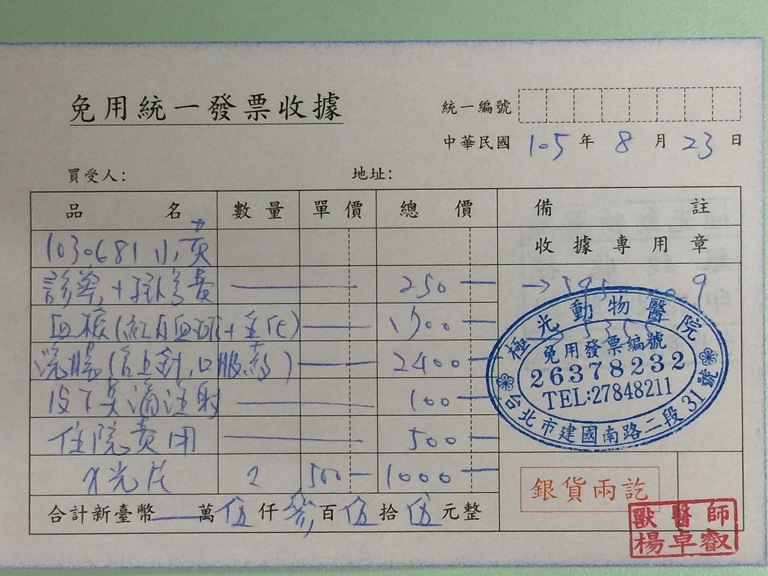 免用統一發票收據
統一編號
中華民國 105 年 8 月 23 日
買受人： 地址：
品名 數量 單價 總價 備註
1030681 小黃 收據專用章
診察 + 掛號費 250
血檢(紅白血球+生化) 1900
浣腸(含止針,口服藥) 2400
皮下點滴注射 100
住院費用 500
X光片 2 500 1000
合計新臺幣 萬 伍 仟 參 百 伍 拾 伍 元整
極光動物醫院
免用發票編號
26378232
TEL:27848211
台北市建國南路二段31號
銀貨兩訖
獸醫師
楊卓叡